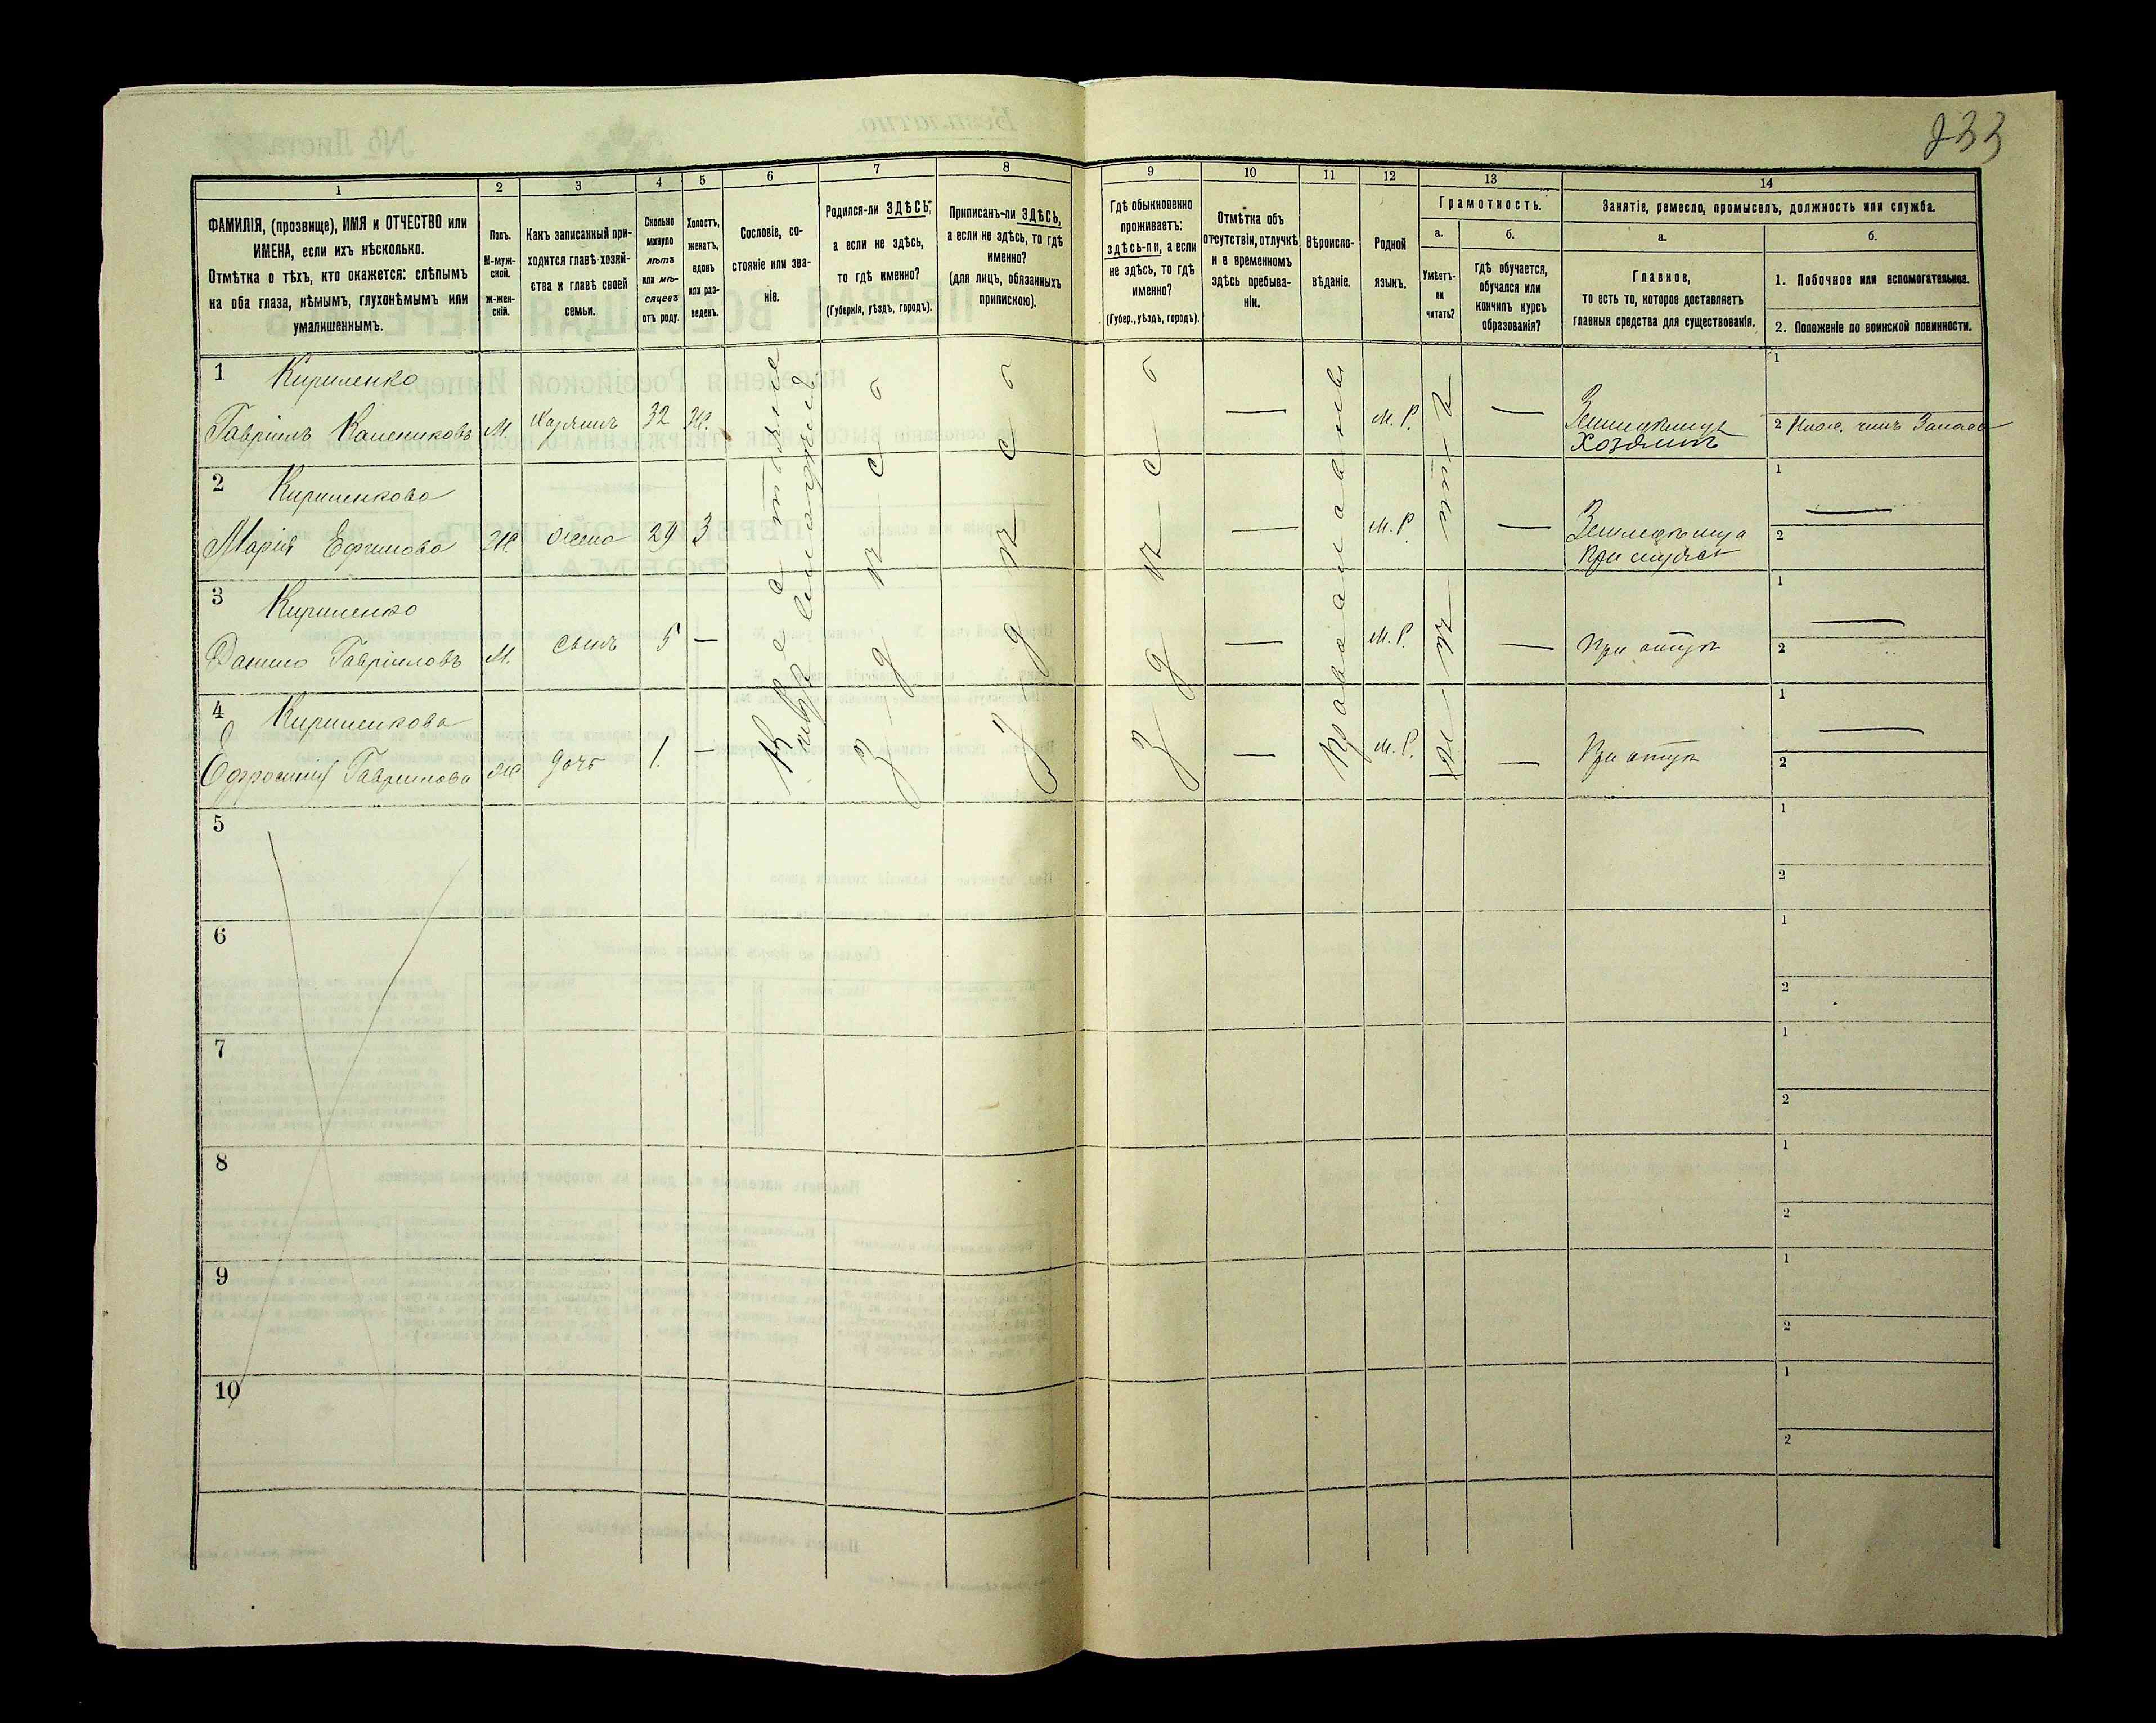 233
1 2 3 4 5 6 7 8 9 10 11 12 13 14
ФАМИЛІЯ, (прозвище), ИМЯ и ОТЧЕСТВО или
ИМЕНА, если ихъ нѣсколько.
Отмѣтка о тѣхъ, кто окажется: слѣпымъ
на оба глаза, нѣмымъ, глухонѣмымъ или
умалишеннымъ.
Полъ.
М-муж-
ской.
ж-жен-
скій.
Какъ записанный при-
ходится главѣ хозяй-
ства и главѣ своей
семьи.
Сколько
минуло
лѣтъ
или мѣ-
сяцевъ
отъ роду.
Холостъ,
женатъ,
вдовъ
или раз-
веденъ.
Сословіе, со-
стояніе или зва-
ніе.
Родился-ли ЗДѢСЬ,
а если не здѣсь,
то гдѣ именно?
(Губернія, уѣздъ, городъ).
Приписанъ-ли ЗДѢСЬ,
а если не здѣсь, то гдѣ
именно?
(для лицъ, обязанныхъ
припискою).
Гдѣ обыкновенно
проживаетъ:
здѣсь-ли, а если
не здѣсь, то гдѣ
именно?
(Губер., уѣздъ, городъ).
Отмѣтка объ
отсутствіи, отлучкѣ
и о временномъ
здѣсь пребыва-
ніи.
Вѣроиспо-
вѣданіе.
Родной
языкъ.
Грамотность.
а.
Умѣетъ-
ли
читать?
б.
гдѣ обучается,
обучался или
кончилъ курсъ
образованія?
Занятіе, ремесло, промыселъ, должность или служба.
а.
Главное,
то есть то, которое доставляетъ
главныя средства для существованія.
б.
1. Побочное или вспомогательное.
2. Положеніе по воинской повинности.
1 Кириленко
Гавріилъ Калениковъ М. Хозяинъ 32 Ж. — М. Р. — Хозяинъ
1
2 Запаса
2 Кириленкова
Марія Ефимова Ж жена 29 З — М. Р. —
1 —
2
3 Кириленко
Данило Гавріиловъ М. сынъ 5 — — М. Р. — При отцѣ
1 —
2
4 Кириленкова
Ефросинія Гавріилова Ж дочь 1. — — М. Р. — При отцѣ
1 —
2
здѣсь
здѣсь
здѣсь
Православный
нѣтъ
5 1
2
6 1
2
7 1
2
8 1
2
9 1
2
10 1
2